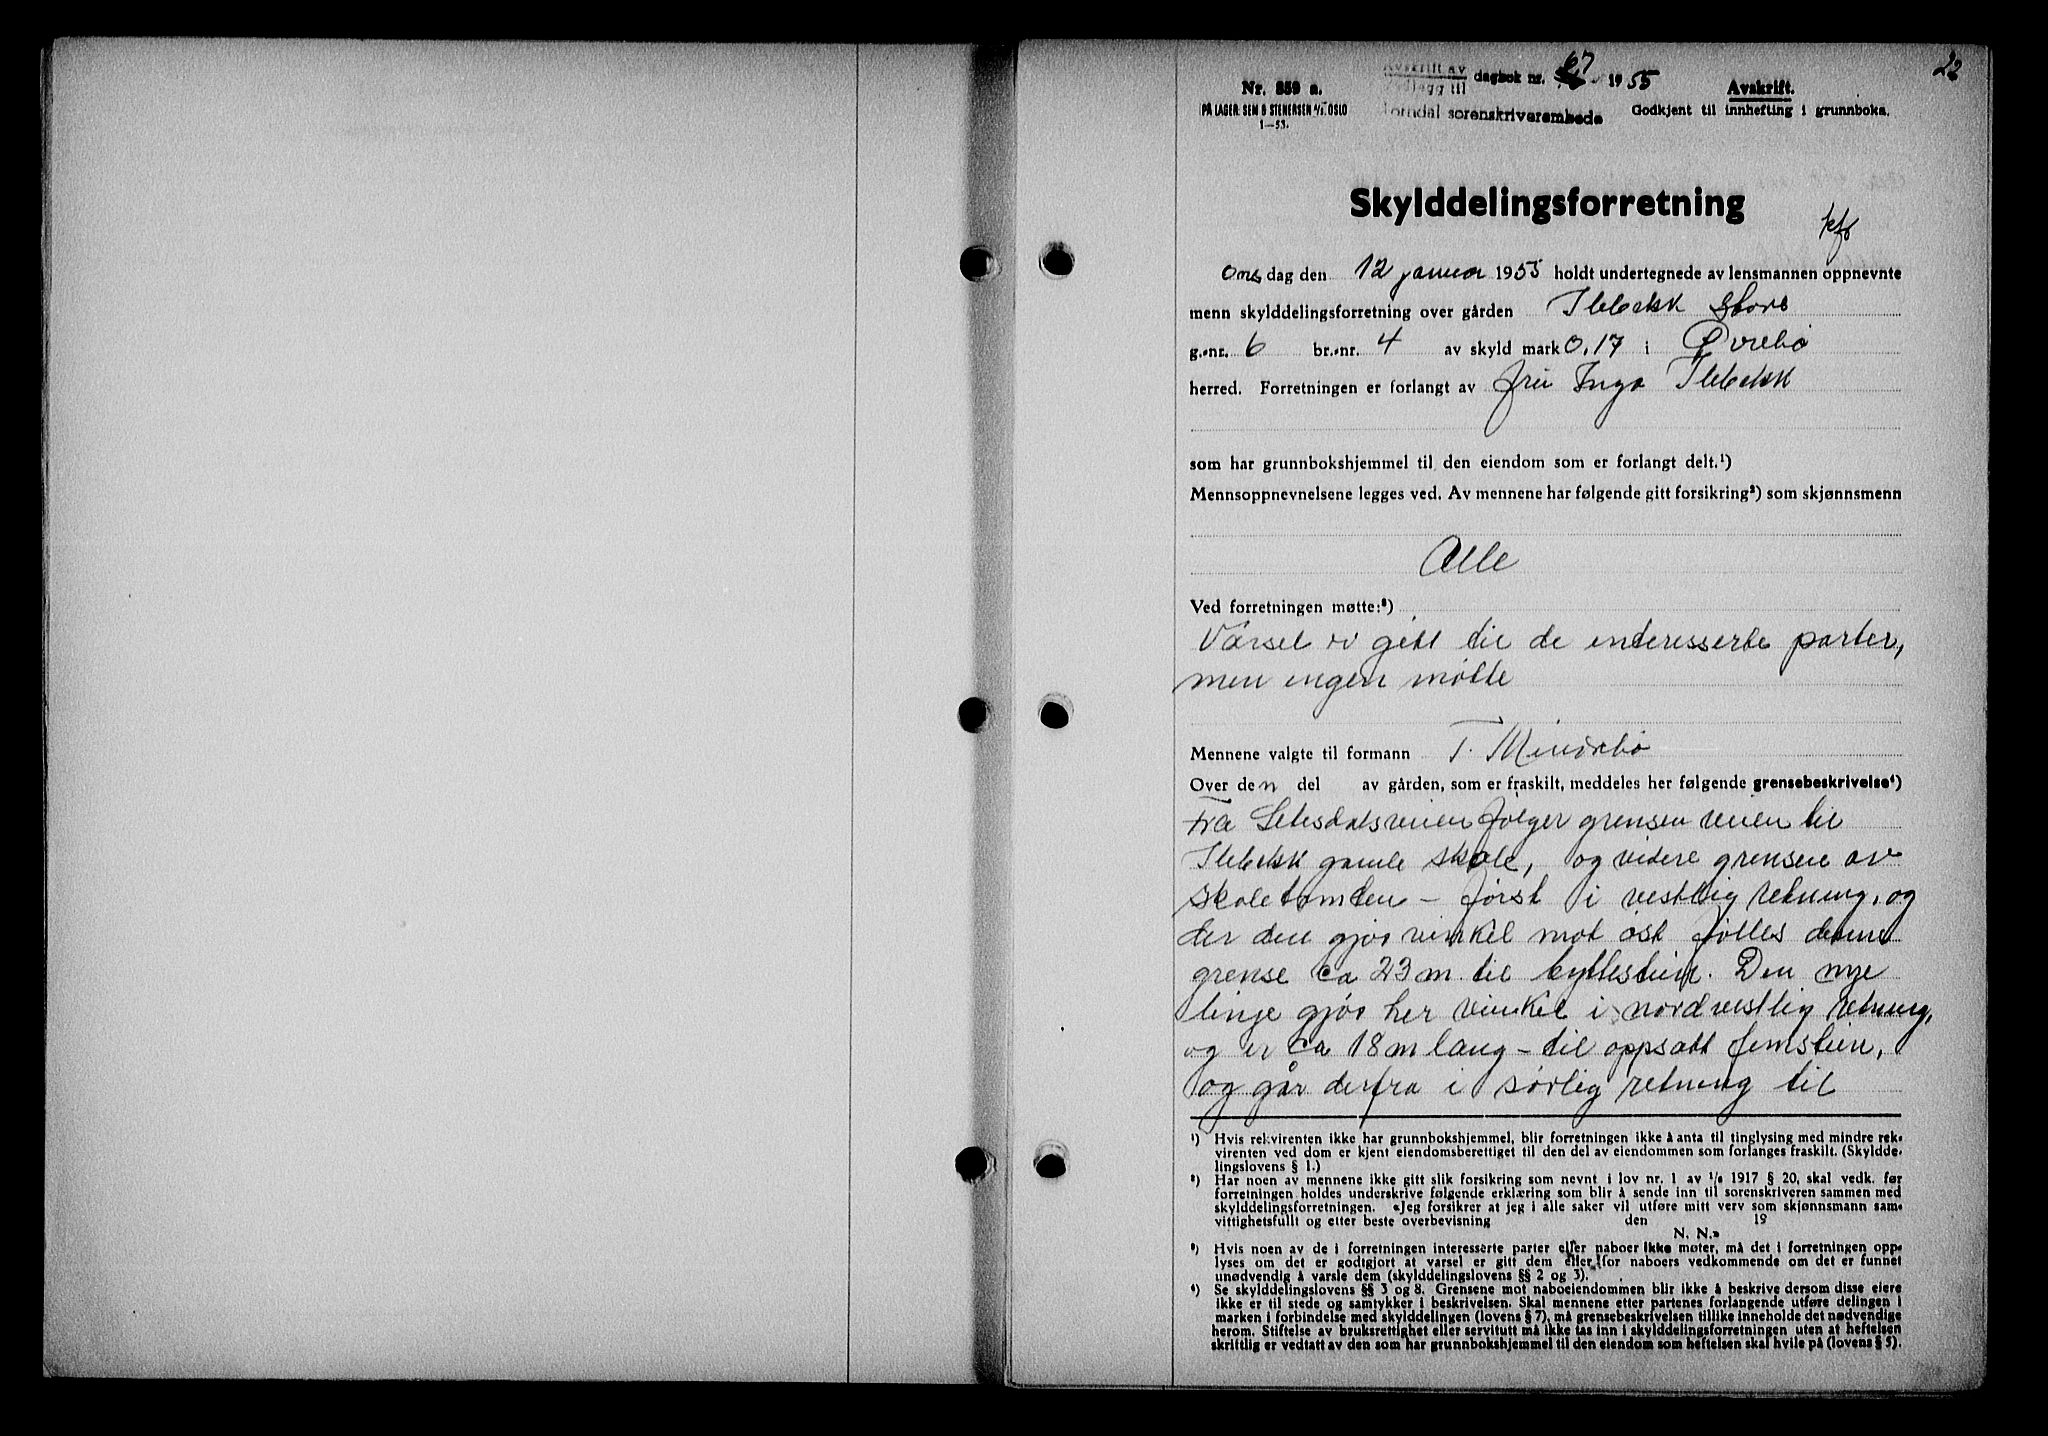 22
Nr. 859 a.
PÅ LAGER: SEM & STENERSEN A/S OSLO
1—53.
Avskrift av dagbok nr. 67 1955
vedlegg til
Torridal sorenskriverembede
Avskrift.
Godkjent til innhefting i grunnboka.
Skylddelingsforretning
kfr
Ons dag den 12 januar 1955 holdt undertegnede av lensmannen oppnevnte
menn skylddelingsforretning over gården Ilebekk store
g.-nr. 6 br.-nr. 4 av skyld mark 0.17 i Øvrebø
herred. Forretningen er forlangt av fru Inga Ilebekk
som har grunnbokshjemmel til den eiendom som er forlangt delt.¹)
Mennsoppnevnelsene legges ved. Av mennene har følgende gitt forsikring²) som skjønnsmenn
Alle
Ved forretningen møtte:³)
Varsel er gitt til de interesserte parter,
men ingen møtte
Mennene valgte til formann T.
Over den del av gården, som er fraskilt, meddeles her følgende grensebeskrivelse⁴)
Fra Setesdalsveien følger grensen veien til
Ilebekk gamle skole, og videre grensene av
skoletomten – først i vestlig retning, og
der den gjør vinkel mot øst følles denne
grense ca 23 m til byttestein. Den nye
linje gjør her vinkel i nordvestlig retning,
og er ca 18 m lang – til oppsatt femstein,
og går derfra i sørlig retning til
¹) Hvis rekvirenten ikke har grunnbokshjemmel, blir forretningen ikke å anta til tinglysing med mindre rek-
virenten ved dom er kjent eiendomsberettiget til den del av eiendommen som forlanges fraskilt. (Skyldde-
lingslovens § 1.)
²) Har noen av mennene ikke gitt slik forsikring som nevnt i lov nr. 1 av 1/6 1917 § 20, skal vedk. før
forretningen holdes underskrive følgende erklæring som blir å sende inn til sorenskriveren sammen med
skylddelingsforretningen. «Jeg forsikrer at jeg i alle saker vil utføre mitt verv som skjønnsmann sam-
vittighetsfullt og etter beste overbevisning den 19
N. N.»
³) Hvis noen av de i forretningen interesserte parter eller naboer ikke møter, må det i forretningen opp-
lyses om det er godtgjort at varsel er gitt dem eller for naboers vedkommende om det er funnet
unødvendig å varsle dem (skylddelingslovens §§ 2 og 3).
⁴) Se skylddelingslovens §§ 3 og 8. Grensene mot naboeiendommen blir ikke å beskrive dersom disse eiere
ikke er til stede og samtykker i beskrivelsen. Skal mennene etter partenes forlangende utføre delingen i
marken i forbindelse med skylddelingen (lovens § 7), må grensebeskrivelsen tillike inneholde det nødvendige
herom. Stiftelse av bruksrettighet eller servitutt må ikke tas inn i skylddelingsforretningen uten at heftelsen
skriftlig er vedtatt av den som har grunnbokshjemmel til den eiendom som heftelsen skal hvile på (lovens § 5).